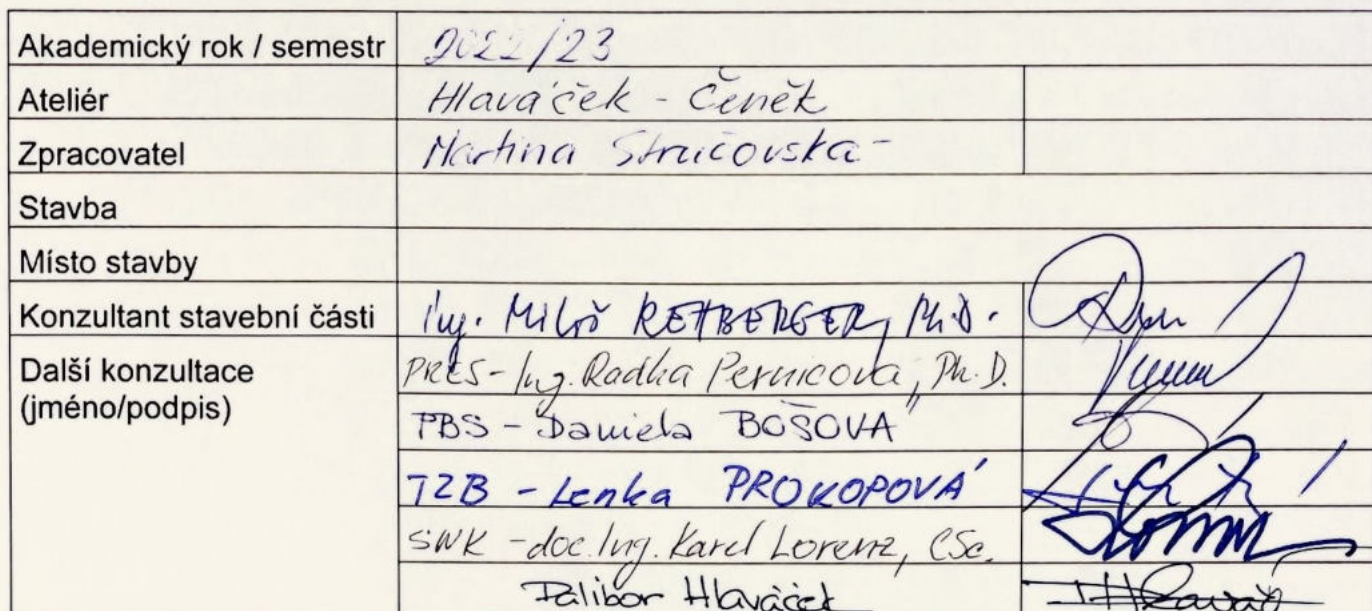 Akademický rok / semestr 2022/23
Ateliér Hlaváček - Čeněk
Zpracovatel Martina Stručovská
Stavba
Místo stavby
Konzultant stavební části Ing. Miloš REHBERGER, Ph.D.
Další konzultace PRES - Ing. Radka Pernicová, Ph.D.
(jméno/podpis)
PBS - Daniela BOŠOVÁ
TZB - Lenka PROKOPOVÁ
SNK - doc. Ing. Karel Lorenz, CSc.
Dalibor Hlaváček